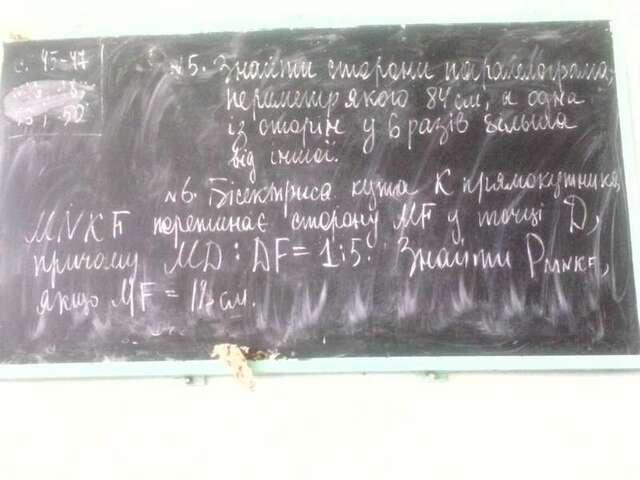 с. 45-47
№5. Знайти сторони паралелограма,
периметр якого 84 см, а одна
із сторін у 6 разів більша
від іншої.
№6. Бісектриса кута K прямокутника
MNKF перетинає сторону MF у точці D,
причому MD : DF = 1:5. Знайти P MNKF,
якщо MF = 18 см.